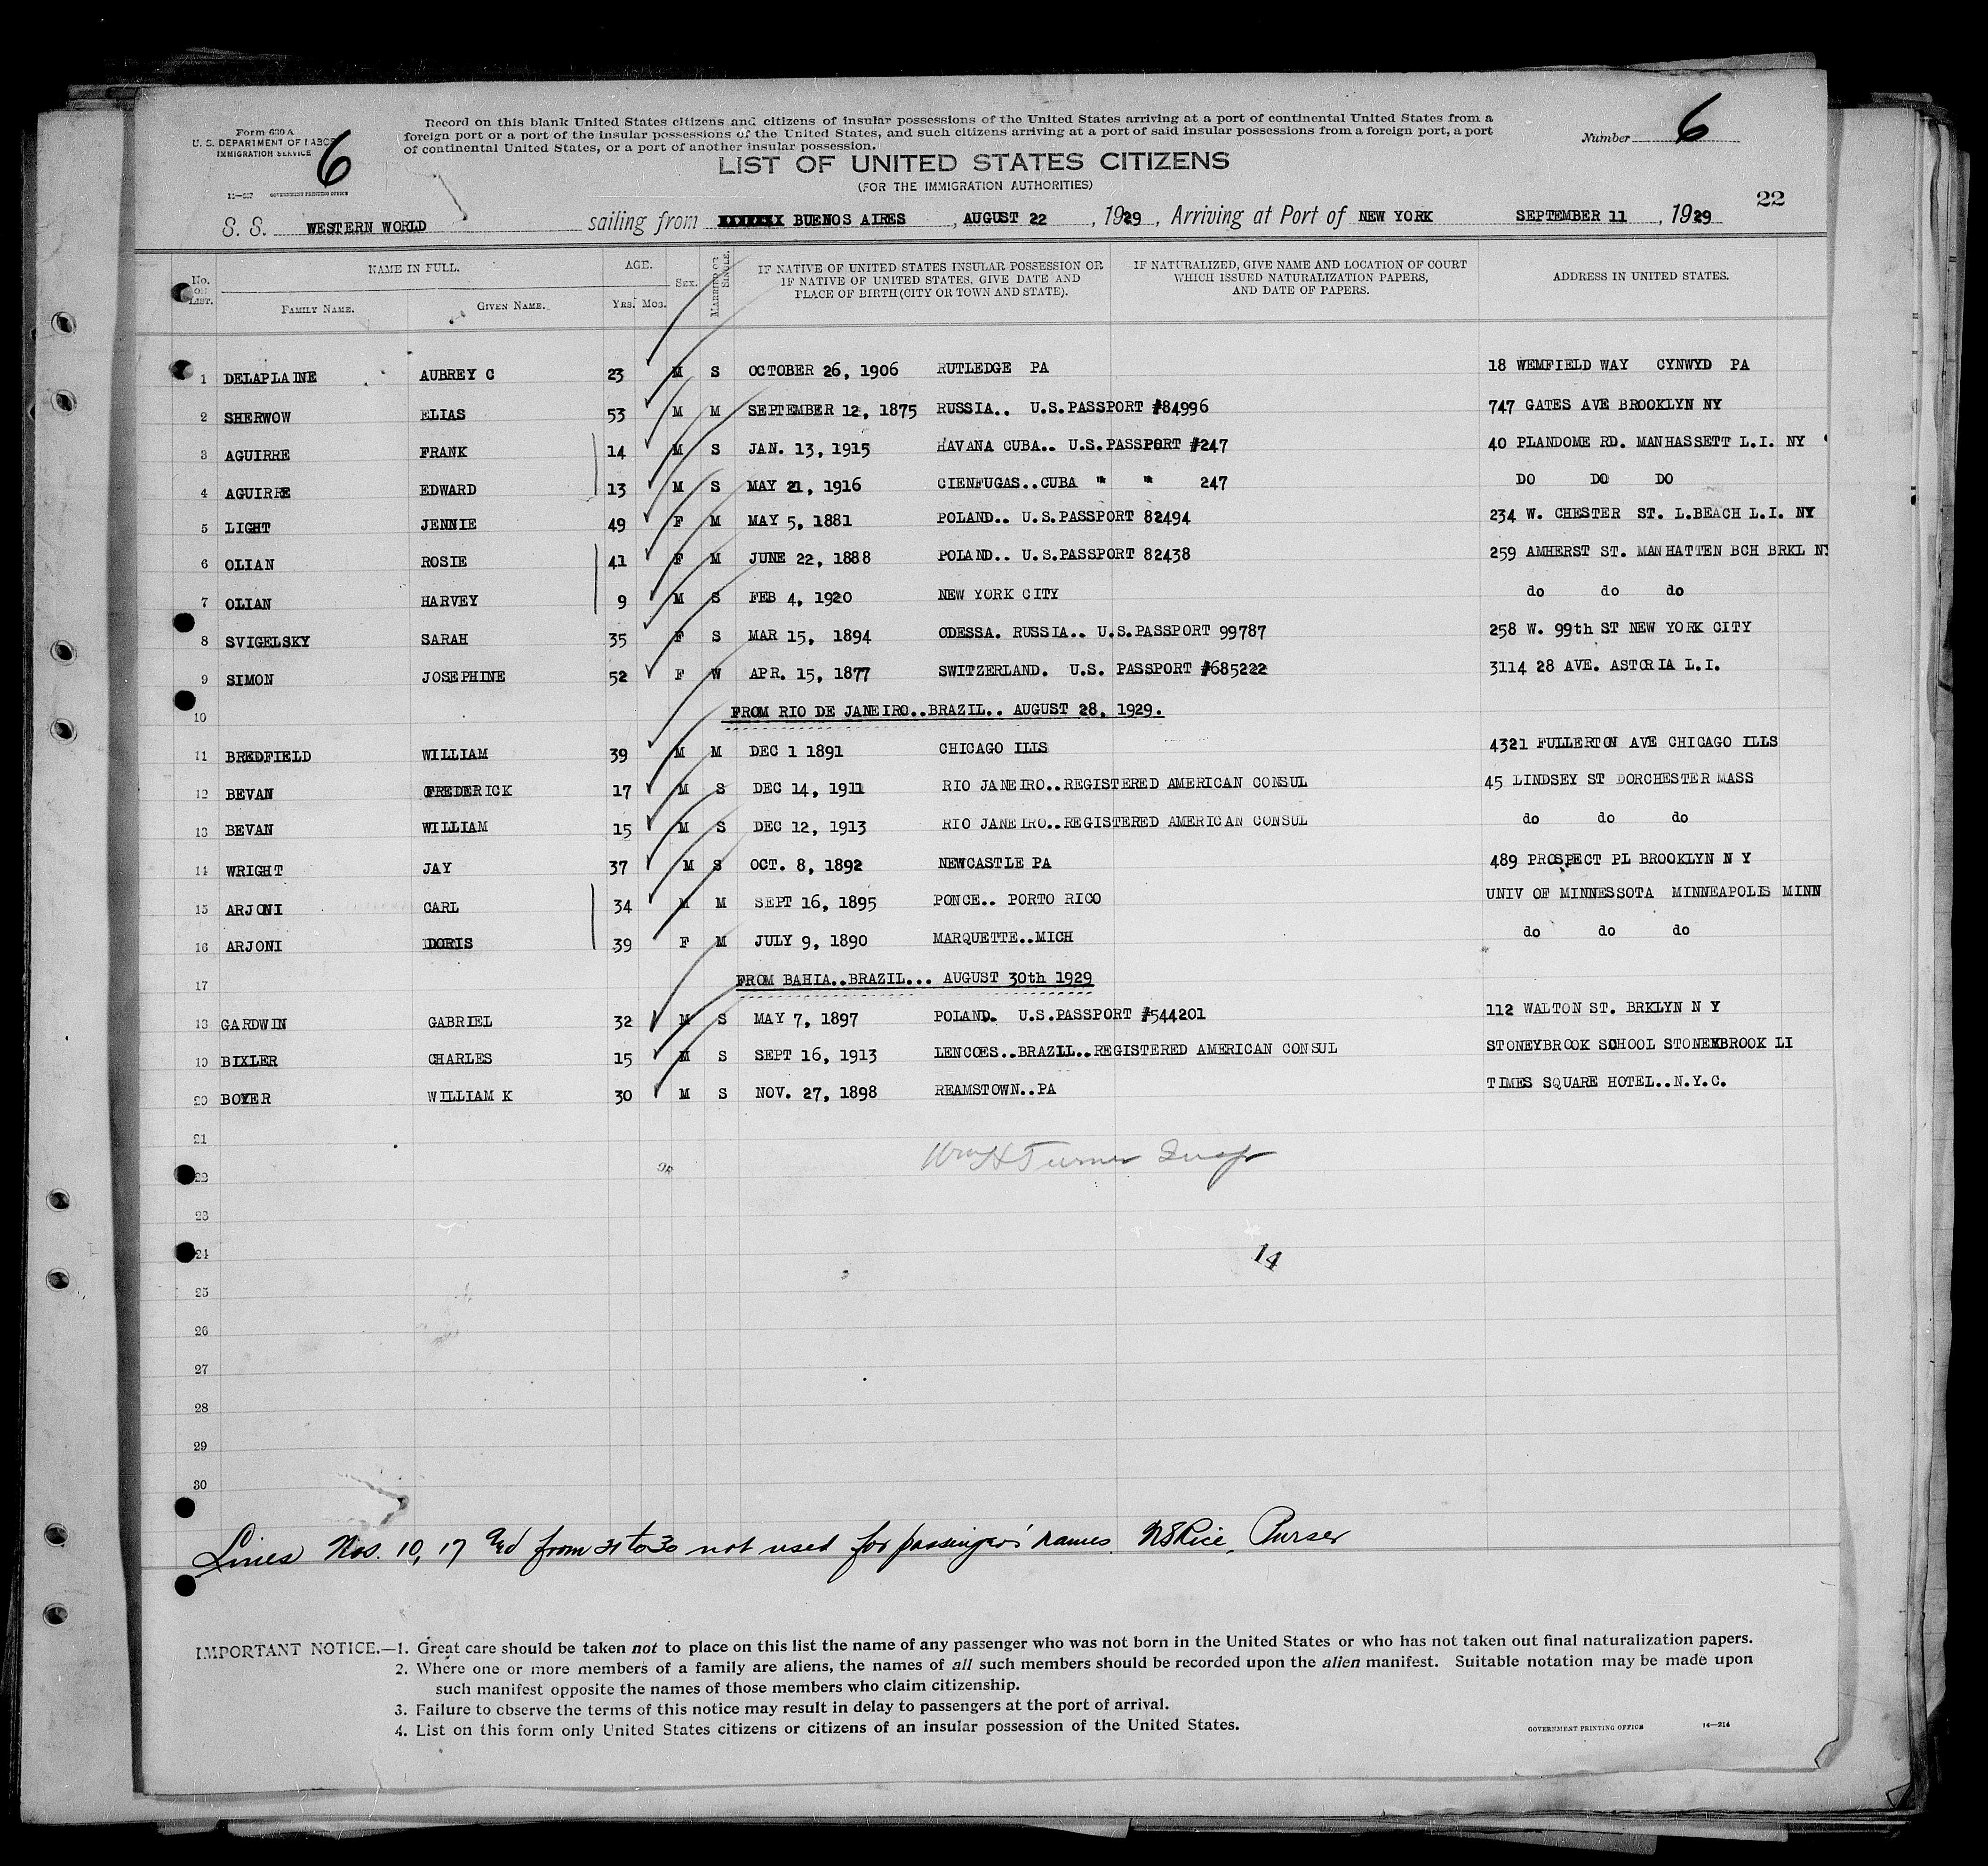 Form 630 A
U. S. DEPARTMENT OF LABOR
IMMIGRATION SERVICE
6
GOVERNMENT PRINTING OFFICE
Record on this blank United States citizens and citizens of insular possessions of the United States arriving at a port of continental United States from a
foreign port or a port of the insular possessions of the United States, and such citizens arriving at a port of said insular possessions from a foreign port, a port
of continental United States, or a port of another insular possession.
Number 6
LIST OF UNITED STATES CITIZENS
(FOR THE IMMIGRATION AUTHORITIES)
22
S. S. WESTERN WORLD sailing from BUENOS AIRES, AUGUST 22, 1929, Arriving at Port of NEW YORK SEPTEMBER 11, 1929
No. ON LIST. NAME IN FULL. FAMILY NAME. GIVEN NAME. AGE. YRS. MOS. SEX. MARRIED OR SINGLE. IF NATIVE OF UNITED STATES INSULAR POSSESSION OR IF NATIVE OF UNITED STATES, GIVE DATE AND PLACE OF BIRTH (CITY OR TOWN AND STATE). IF NATURALIZED, GIVE NAME AND LOCATION OF COURT WHICH ISSUED NATURALIZATION PAPERS, AND DATE OF PAPERS. ADDRESS IN UNITED STATES.
1 DELAPLAINE AUBREY C 23 M S OCTOBER 26, 1906 RUTLEDGE PA 18 WEMFIELD WAY CYNWYD PA
2 SHERWOW ELIAS 53 M M SEPTEMBER 12, 1875 RUSSIA.. U.S.PASSPORT #84996 747 GATES AVE BROOKLYN NY
3 AGUIRRE FRANK 14 M S JAN. 13, 1915 HAVANA CUBA.. U.S.PASSPORT #247 40 PLANDOME RD. MANHASSETT L.I. NY
4 AGUIRRE EDWARD 13 M S MAY 21, 1916 CIENFUGAS..CUBA " " 247 DO DO DO
5 LIGHT JENNIE 49 F M MAY 5, 1881 POLAND.. U.S.PASSPORT 82494 234 W. CHESTER ST. L.BEACH L.I. NY
6 OLIAN ROSIE 41 F M JUNE 22, 1888 POLAND.. U.S.PASSPORT 82438 259 AMHERST ST. MANHATTEN BCH BRKL NY
7 OLIAN HARVEY 9 M S FEB 4, 1920 NEW YORK CITY do do do
8 SVIGELSKY SARAH 35 F S MAR 15, 1894 ODESSA. RUSSIA.. U.S.PASSPORT 99787 258 W. 99th ST NEW YORK CITY
9 SIMON JOSEPHINE 52 F W APR. 15, 1877 SWITZERLAND. U.S. PASSPORT #685222 3114 28 AVE. ASTORIA L.I.
10 FROM RIO DE JANEIRO..BRAZIL.. AUGUST 28, 1929.
11 BREDFIELD WILLIAM 39 M M DEC 1 1891 CHICAGO ILLS 4321 FULLERTON AVE CHICAGO ILLS
12 BEVAN FREDERICK 17 M S DEC 14, 1911 RIO JANEIRO..REGISTERED AMERICAN CONSUL 45 LINDSEY ST DORCHESTER MASS
13 BEVAN WILLIAM 15 M S DEC 12, 1913 RIO JANEIRO..REGISTERED AMERICAN CONSUL do do do
14 WRIGHT JAY 37 M S OCT. 8, 1892 NEWCASTLE PA 489 PROSPECT PL BROOKLYN N Y
15 ARJONI CARL 34 M M SEPT 16, 1895 PONCE.. PORTO RICO UNIV OF MINNESSOTA MINNEAPOLIS MINN
16 ARJONI DORIS 39 F M JULY 9, 1890 MARQUETTE..MICH do do do
17 FROM BAHIA..BRAZIL... AUGUST 30th 1929
18 GARDWIN GABRIEL 32 M S MAY 7, 1897 POLAND. U.S.PASSPORT #544201 112 WALTON ST. BRKLYN N Y
19 BIXLER CHARLES 15 M S SEPT 16, 1913 LENCOES..BRAZIL..REGISTERED AMERICAN CONSUL STONEYBROOK SCHOOL STONEYBROOK LI
20 BOYER WILLIAM K 30 M S NOV. 27, 1898 REAMSTOWN..PA TIMES SQUARE HOTEL..N.Y.C.
21
Wm H Turner Insp
22
23
24
14
25
26
27
28
29
30
Lines Nos. 10, 17 and from 21 to 30 not used for passengers' names. Rice, Purser
IMPORTANT NOTICE.—1. Great care should be taken not to place on this list the name of any passenger who was not born in the United States or who has not taken out final naturalization papers.
2. Where one or more members of a family are aliens, the names of all such members should be recorded upon the alien manifest. Suitable notation may be made upon
such manifest opposite the names of those members who claim citizenship.
3. Failure to observe the terms of this notice may result in delay to passengers at the port of arrival.
4. List on this form only United States citizens or citizens of an insular possession of the United States.
GOVERNMENT PRINTING OFFICE 14—214